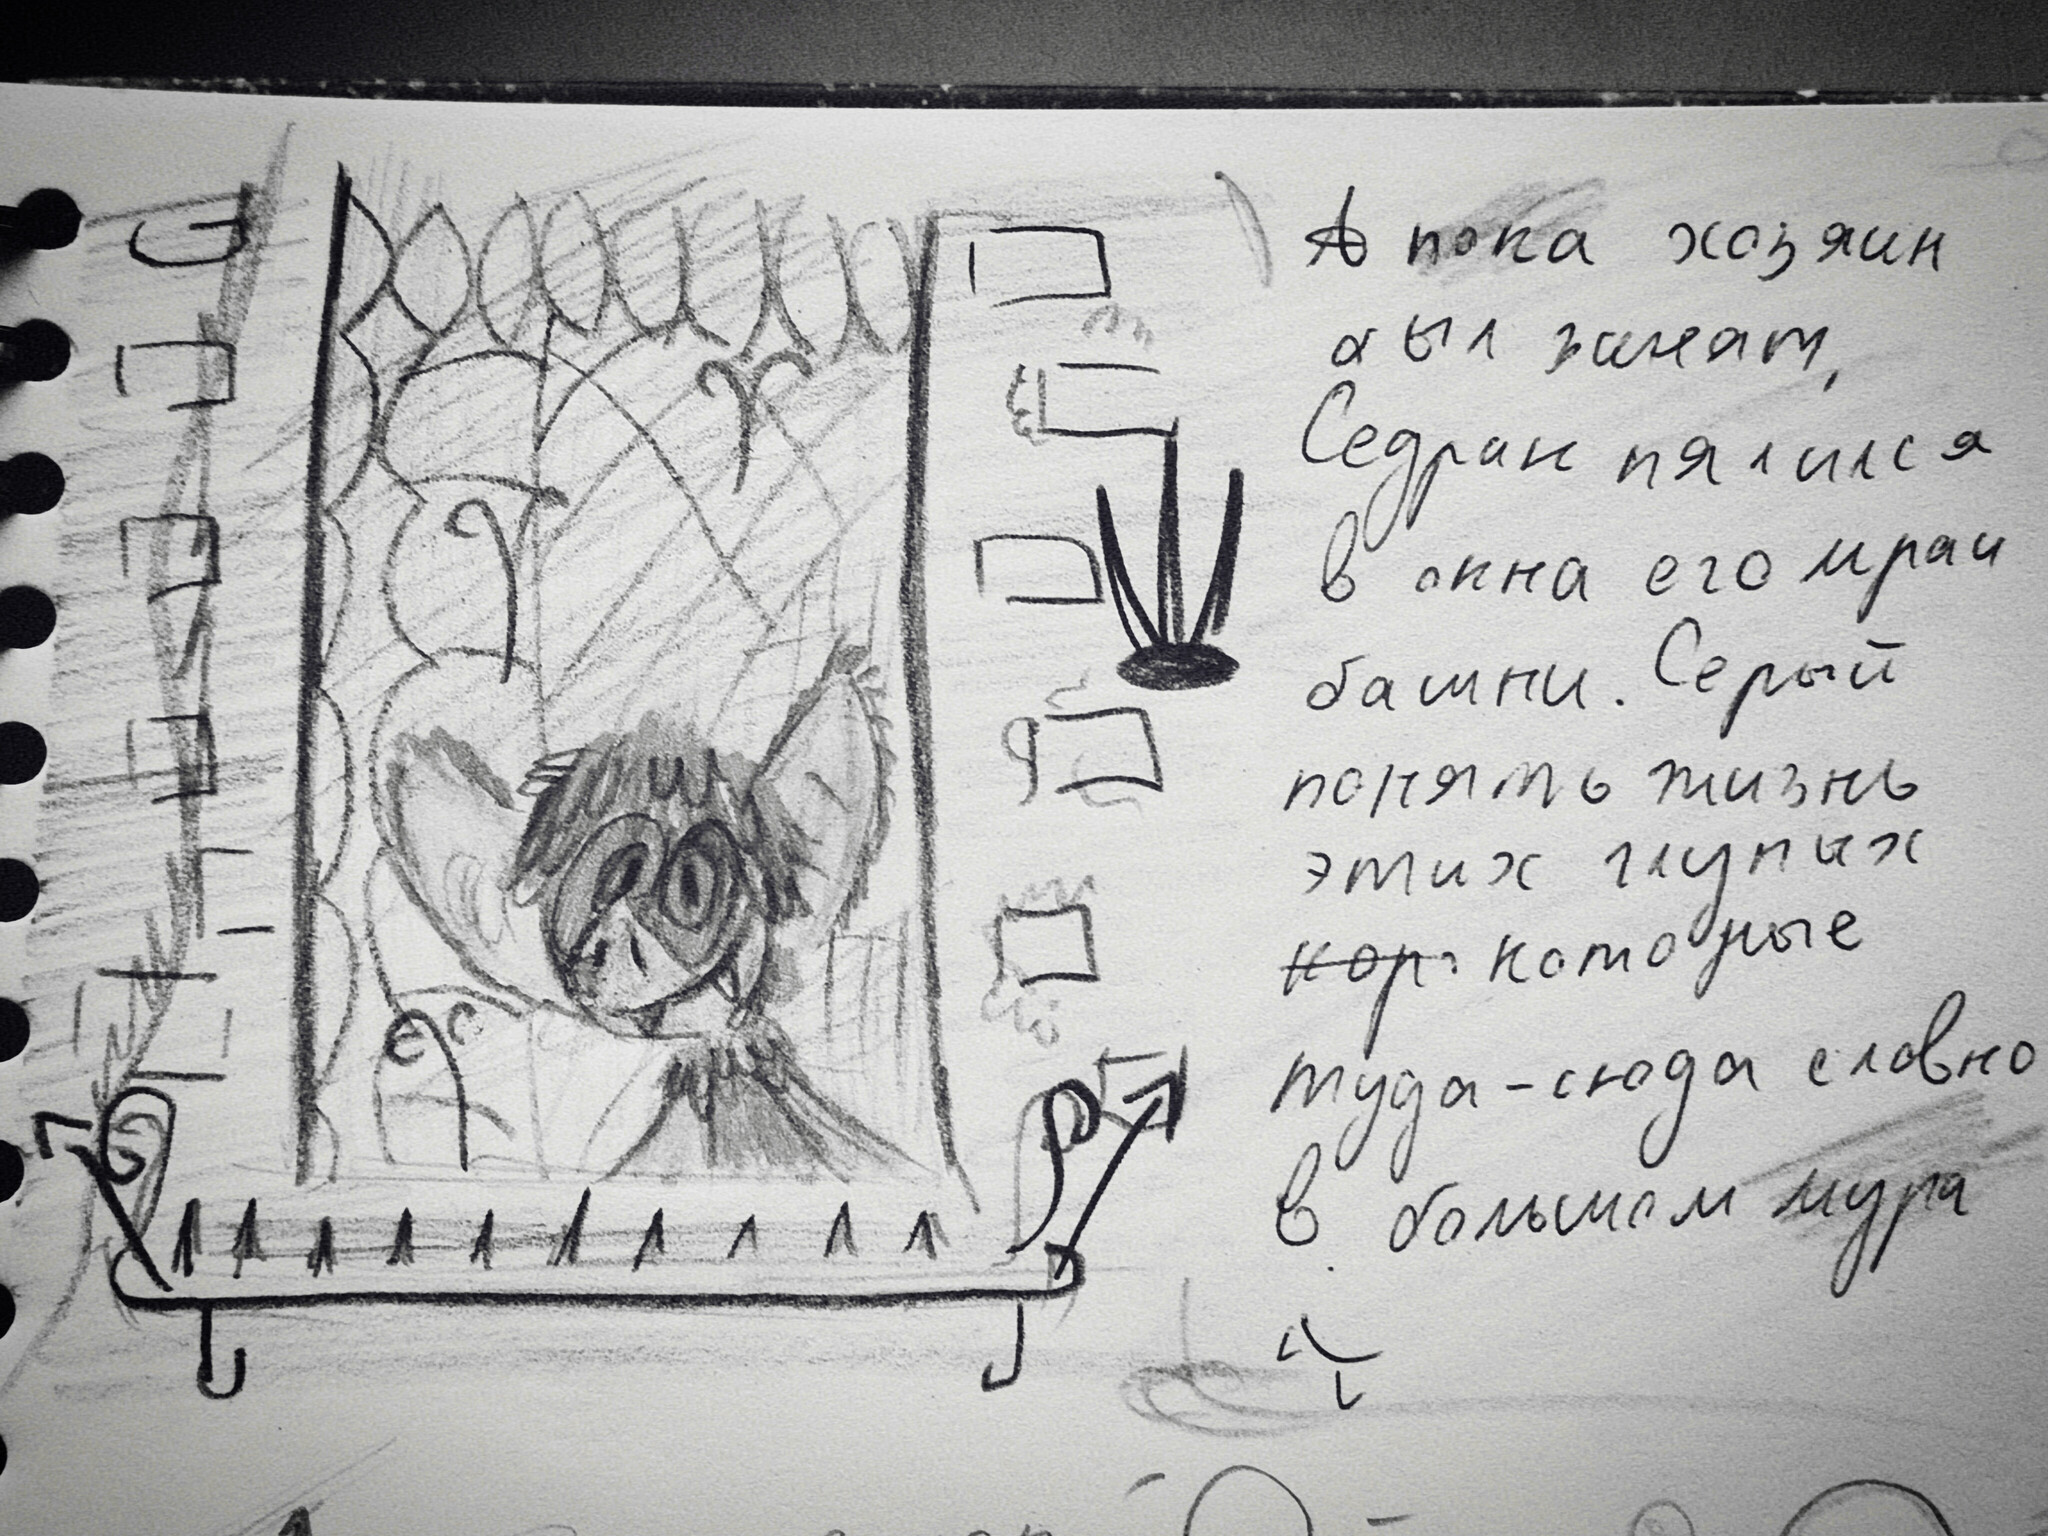 А пока хозяин
был занят,
Седрик пялился
в окна его мрач
башни. Серый
понять жизнь
этих глупых
кор которые
туда-сюда словно
в большом мура